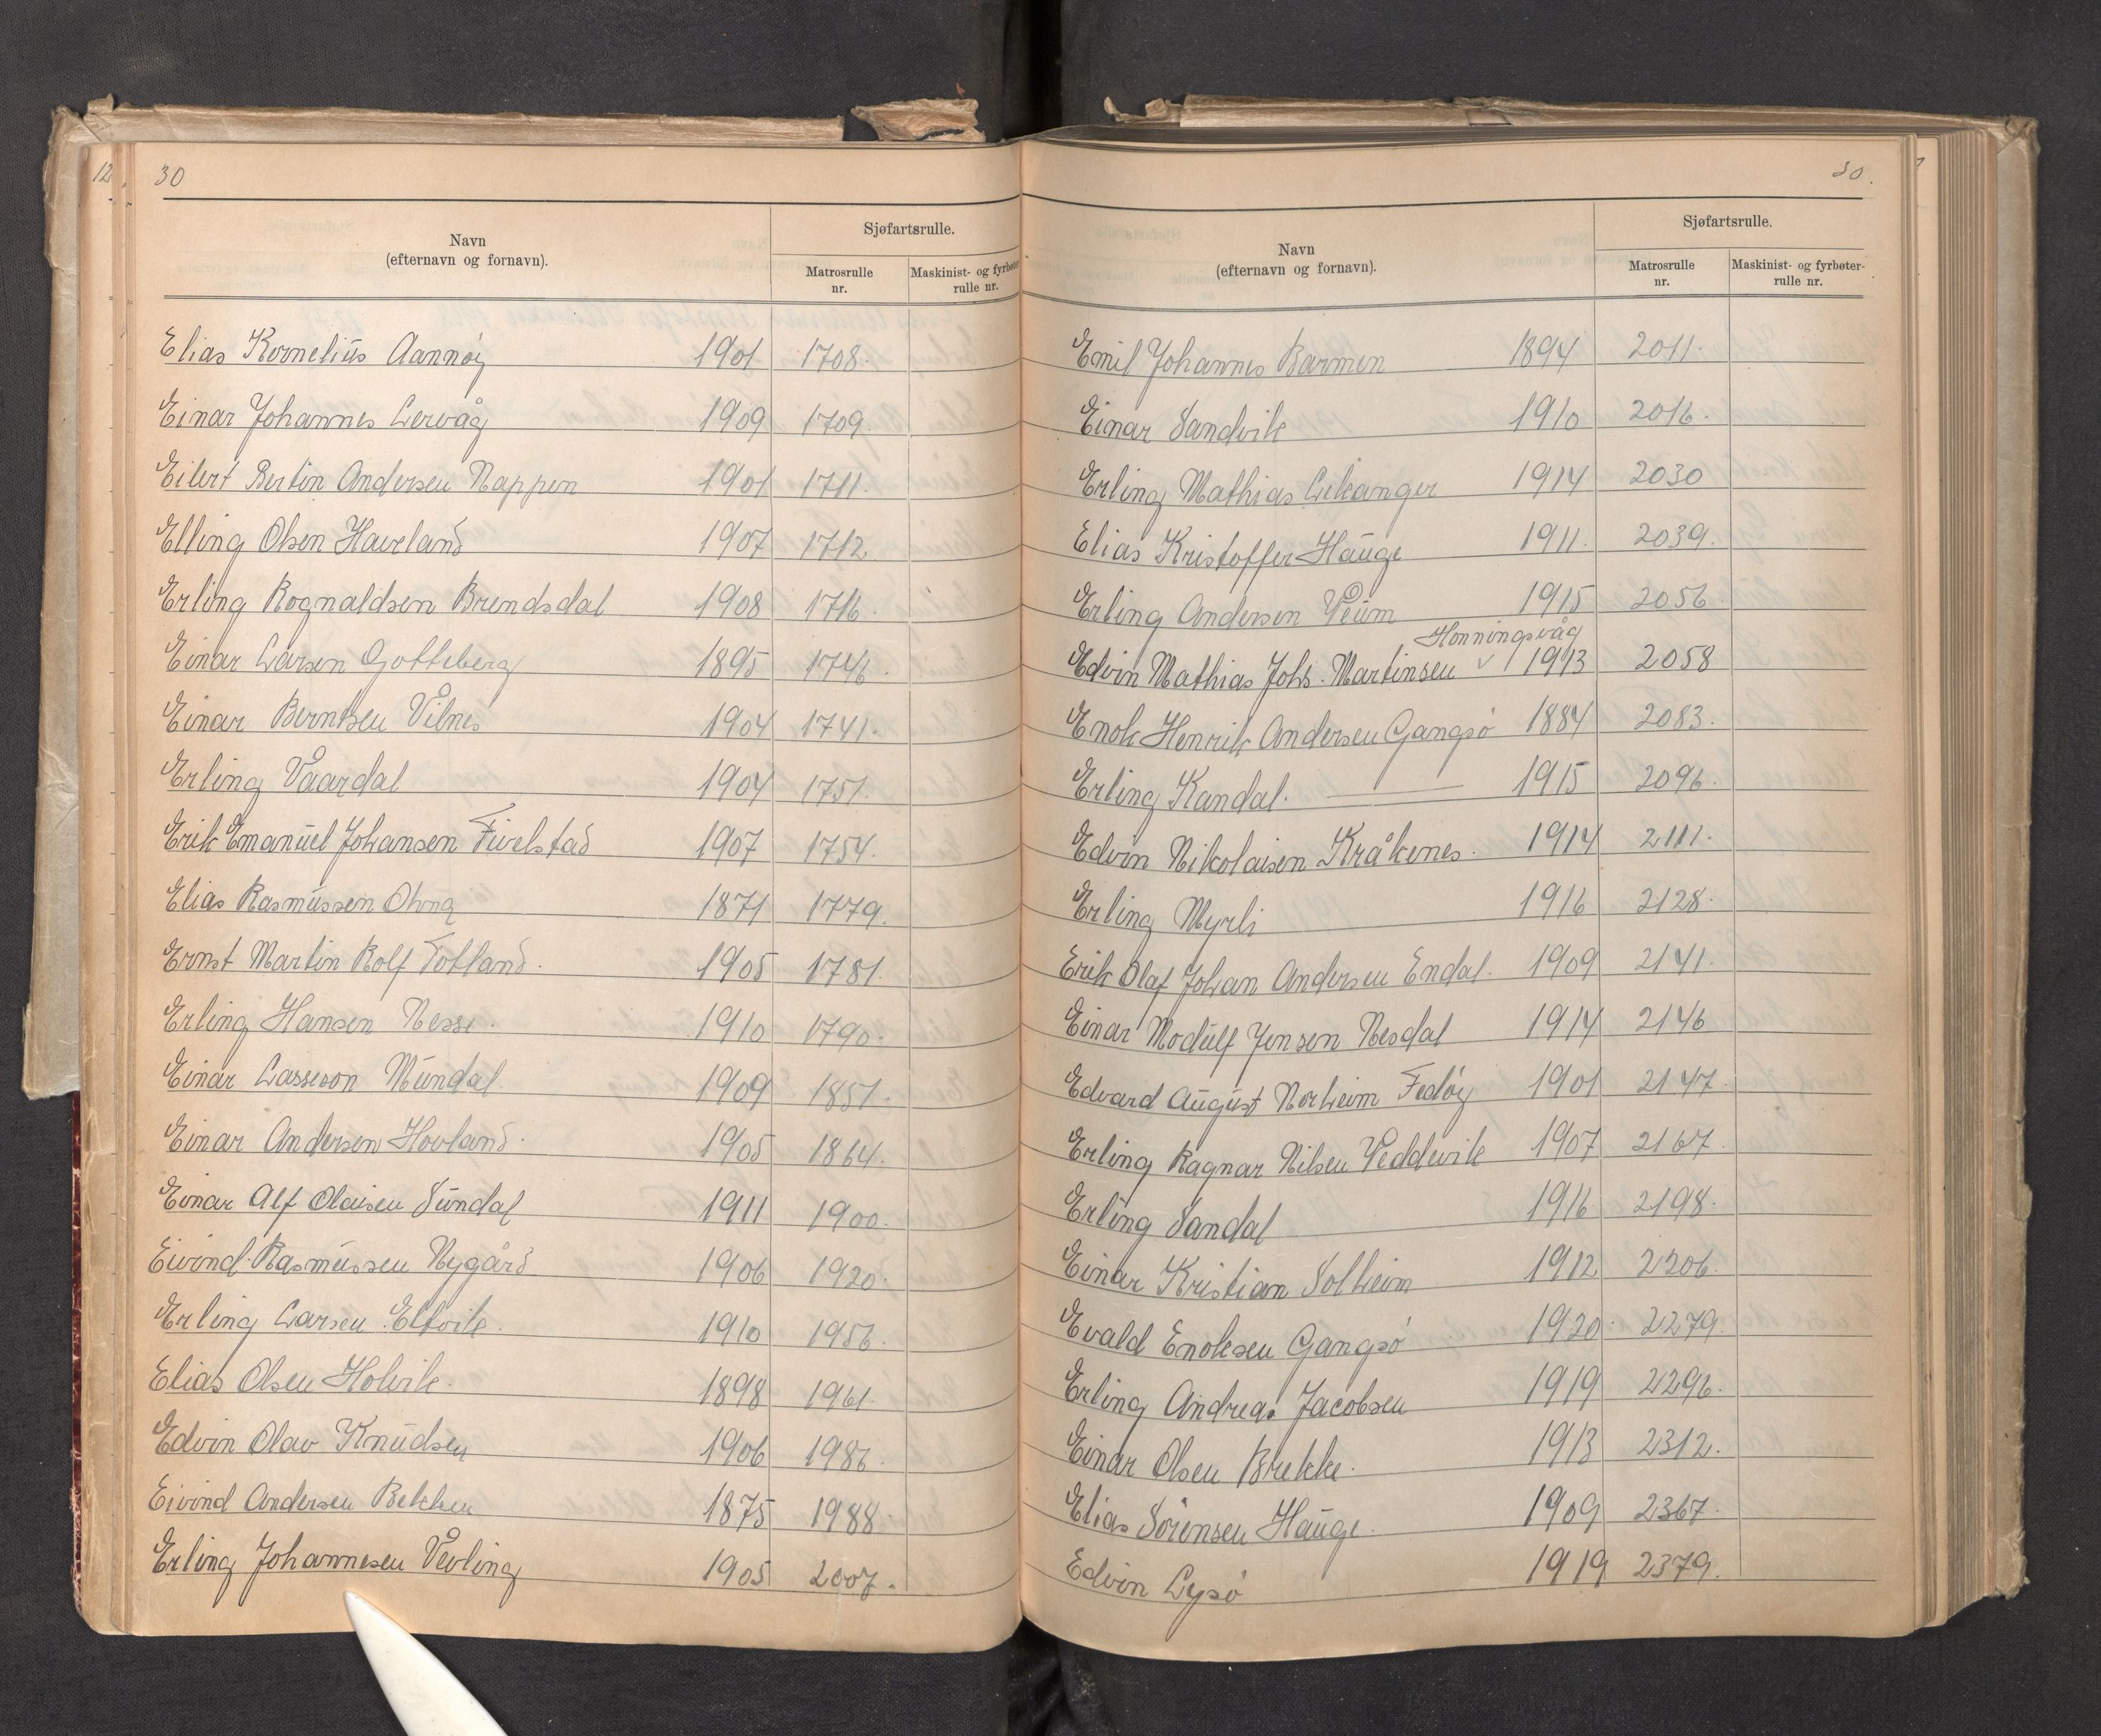 12
30
Navn
(efternavn og fornavn).
Sjøfartsrulle.
Matrosrulle
nr.
Maskinist- og fyrbøter
rulle nr.
Elias Kornelius Aannøy 1901 1708.
Einar Johannes Lervåg 1909 1709.
Eilert Bertin Andersen Nappen 1901 1711.
Elling Olsen Haveland 1907 1712
Erling Rognaldsen Brendsdal 1908 1716.
Einar Larsen Gotteberg 1895 1746.
Einar Berntsen Vilnes 1904 1741.
Erling Vaardal 1904 1751.
Erik Emanuel Johansen Fivelstad 1907 1754.
Elias Rasmussen 1871 1779.
Ernst Martin Rolf Totland. 1905 1781.
Erling Hansen Nesse. 1910 1790.
Einar Lasseson Mundal. 1909 1851.
Einar Andersen Hovland. 1905 1864.
Einar Alf Olaisen Sundal 1911 1900.
Eivind Rasmussen Nygård 1906 1920.
Erling Larsen Eltvik. 1910 1956.
Elias Olsen Holvik. 1898 1961.
Edvin Olav Knudsen 1906 1986.
Eivind Andersen Bekken 1875 1988.
Erling Johannesen Vevling 1905 2007.
30.
Navn
(efternavn og fornavn).
Sjøfartsrulle.
Matrosrulle
nr.
Maskinist- og fyrbøter-
rulle nr.
Emil Johannes Barmen 1894 2011.
Einar Sandvik 1910 2016.
Erling Mathias Leikanger 1914 2030
Elias Kristoffer Hauge 1911. 2039.
Erling Andersen Veum 1915 2056.
Honningsvåg
Edvin Mathias Johs. Martinsen √ 1913 2058
Enok Henrik Andersen Gangsø 1884 2083.
Erling Kandal. 1915 2096.
Edvin Nikolaisen Kråkenes. 1914 2111.
Erling Myrli 1916 2128.
Erik Olaf Johan Andersen Endal. 1909 2141.
Einar Modulf Jensen Nesdal 1914 2146
Edvard August Norheim Fedøy 1901 2147.
Erling Ragnar Nilsen Veddevik 1907 2167.
Erling Sandal 1916 2198.
Einar Kristian Solheim 1912 2206.
Evald Enoksen Gangsø 1920. 2279.
Erling Andreas Jacobsen 1919 2296.
Einar Olsen Brekke. 1913 2312.
Elias Sørensen Hauge. 1909 2367.
Edvin Lysø 1919 2379.